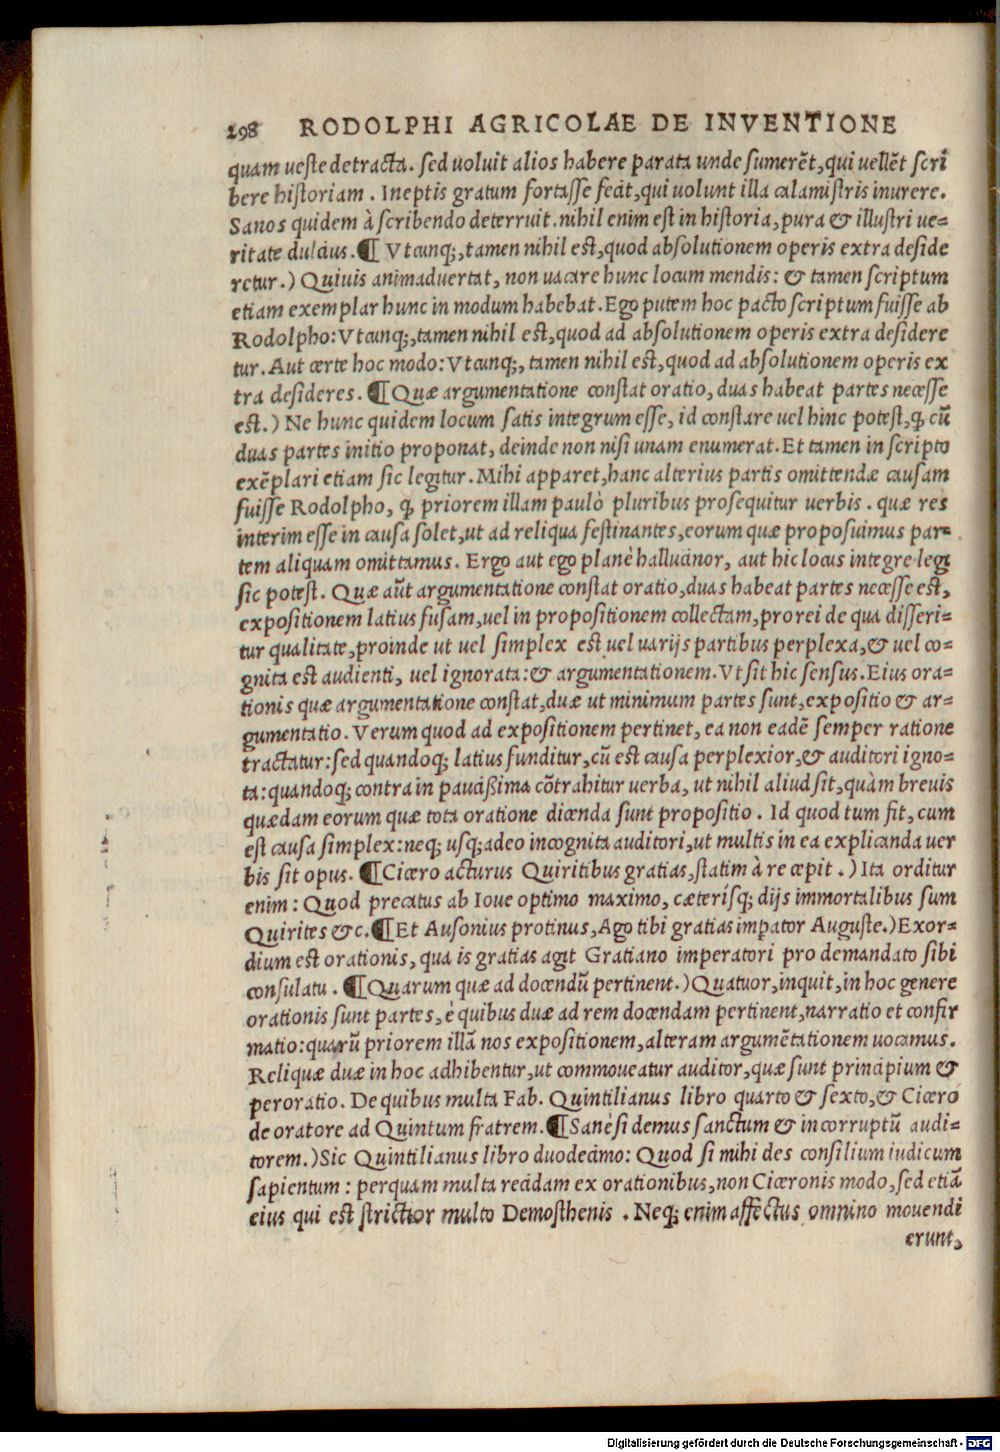 298 RODOLPHI AGRICOLAE DE INVENTIONE
quam ueste detracta. sed uoluit alios habere parata unde sumerẽt, qui uellẽt scri
bere historiam. Ineptis gratum fortasse fecit, qui uolunt illa calamistris inurere.
Sanos quidem à scribendo deterruit. nihil enim est in historia, pura & illustri ue=
ritate dulcius. ¶ Vtcunq;, tamen nihil est, quod absolutionem operis extra deside
retur.) Quiuis animaduertat, non uacare hunc locum mendis: & tamen scriptum
etiam exemplar hunc in modum habebat. Ego putem hoc pacto scriptum fuisse ab
Rodolpho: Vtcunq;, tamen nihil est, quod ad absolutionem operis extra desidere
tur. Aut certe hoc modo: Vtcunq;, tamen nihil est, quod ad absolutionem operis ex
tra desideres. ¶ Quæ argumentatione constat oratio, duas habeat partes necesse
est.) Ne hunc quidem locum satis integrum esse, id constare uel hinc potest, ꝙ cũ
duas partes initio proponat, deinde non nisi unam enumerat. Et tamen in scripto
exẽplari etiam sic legitur. Mihi apparet, hanc alterius partis omittendæ causam
fuisse Rodolpho, ꝙ priorem illam paulò pluribus prosequitur uerbis. quæ res
interim esse in causa solet, ut ad reliqua festinantes, eorum quæ proposuimus par=
tem aliquam omittamus. Ergo aut ego planè hallucinor, aut hic locus integre legi
sic potest. Quæ aũt argumentatione constat oratio, duas habeat partes necesse est,
expositionem latius fusam, uel in propositionem collectam, pro rei de qua disseri=
tur qualitate, proinde ut uel simplex est uel uarijs partibus perplexa, & uel co=
gnita est audienti, uel ignorata: & argumentationem. Vt sit hic sensus. Eius ora=
tionis quæ argumentatione constat, duæ ut minimum partes sunt, expositio & ar=
gumentatio. Verum quod ad expositionem pertinet, ea non eadẽ semper ratione
tractatur: sed quandoq; latius funditur, cũ est causa perplexior, & auditori igno=
ta: quandoq; contra in paucißima cõtrahitur uerba, ut nihil aliud sit, quàm breuis
quædam eorum quæ tota oratione dicenda sunt propositio. Id quod tum fit, cum
est causa simplex: neq; usq; adeo incognita auditori, ut multis in ea explicanda uer
bis sit opus. ¶ Cicero acturus Quiritibus gratias, statim à re cœpit.) Ita orditur
enim: Quod precatus ab Ioue optimo maximo, cæterísq; dijs immortalibus sum
Quirites &c. ¶ Et Ausonius protinus, Ago tibi gratias imperator Auguste.) Exor=
dium est orationis, qua is gratias agit Gratiano imperatori pro demandato sibi
consulatu. ¶ Quarum quæ ad docendũ pertinent.) Quatuor, inquit, in hoc genere
orationis sunt partes, è quibus duæ ad rem docendam pertinent, narratio et confir
matio: quarũ priorem illã nos expositionem, alteram argumẽtationem uocamus.
Reliquæ duæ in hoc adhibentur, ut commoueatur auditor, quæ sunt principium &
peroratio. De quibus multa Fab. Quintilianus libro quarto & sexto, & Cicero
de oratore ad Quintum fratrem. ¶ Sanè si demus sanctum & incorruptũ audi=
torem.) Sic Quintilianus libro duodecimo: Quod si mihi des consilium iudicum
sapientum: perquam multa recidam ex orationibus, non Ciceronis modo, sed etiã
eius qui est strictior multo Demosthenis. Neq; enim affectus omnino mouendi
erunt,
Digitalisierung gefördert durch die Deutsche Forschungsgemeinschaft - DFG